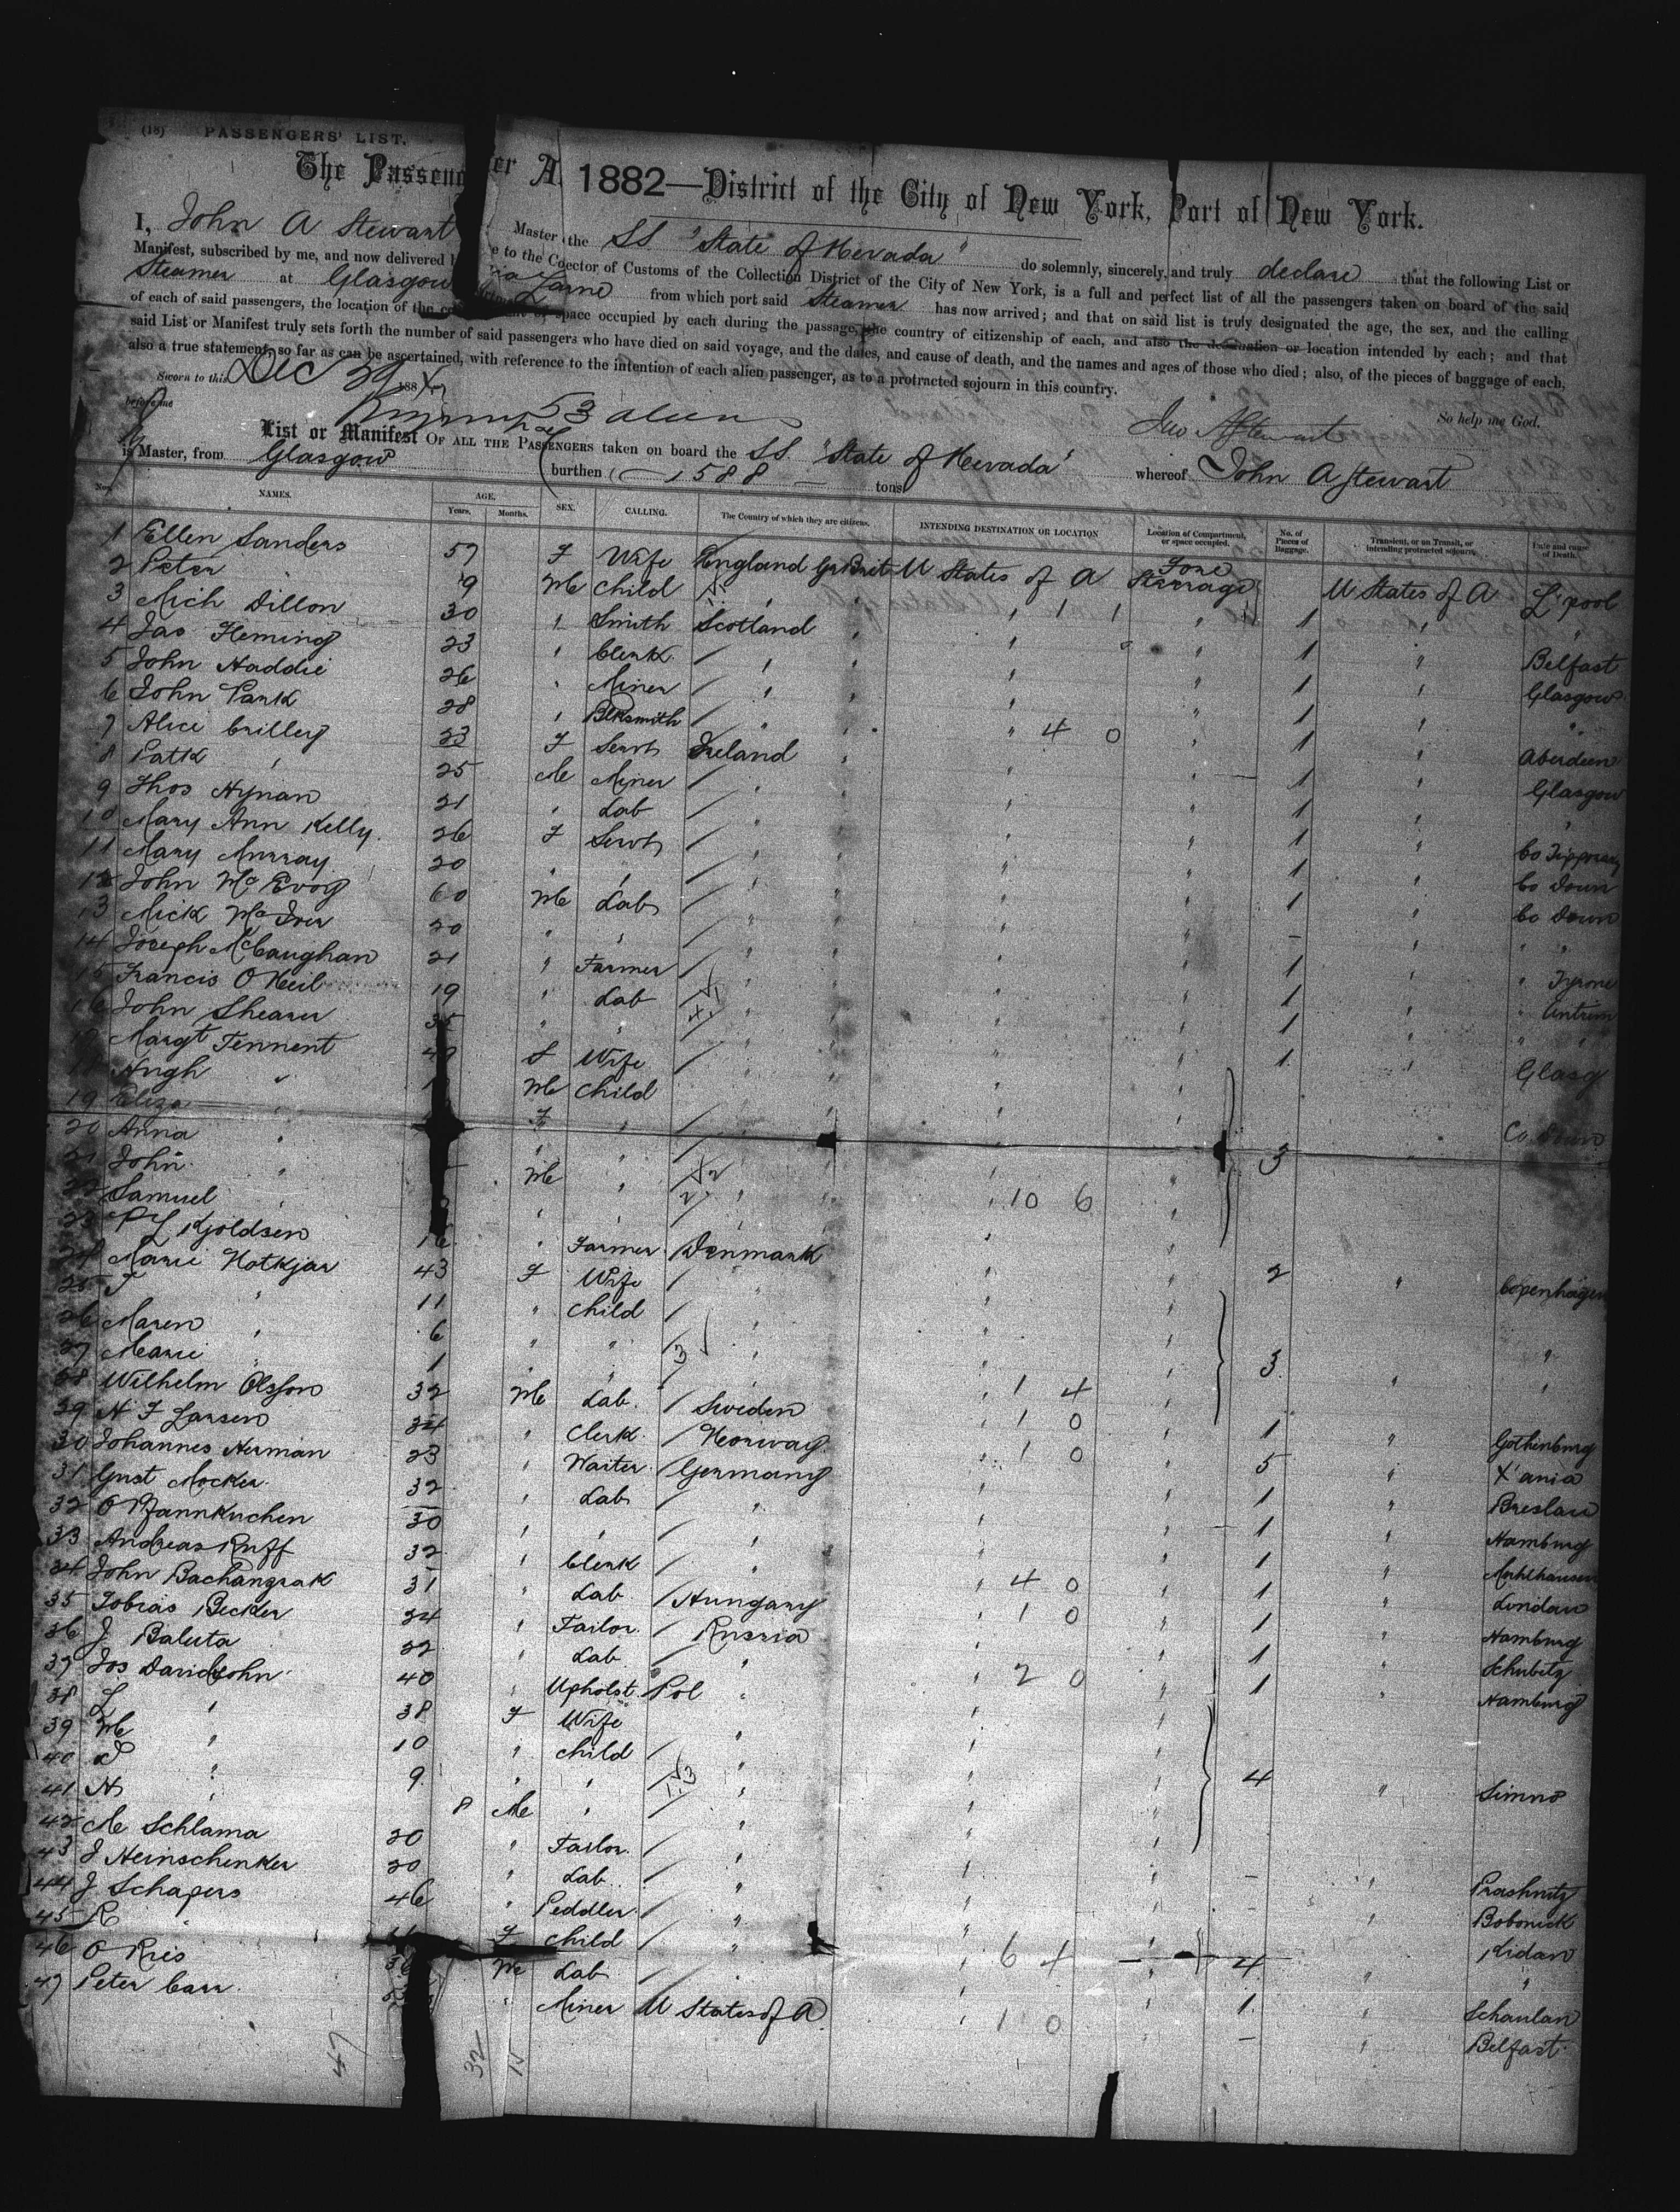 (18) PASSENGERS' LIST.
The Passenger A. 1882—District of the City of New York, Port of New York.
I, John A Stewart Master the SS "State of Nevada" do solemnly, sincerely, and truly declare that the following List or
Manifest, subscribed by me, and now delivered to the Collector of Customs of the Collection District of the City of New York, is a full and perfect list of all the passengers taken on board of the said
Steamer at Glasgow via Larne from which port said Steamer has now arrived; and that on said list is truly designated the age, the sex, and the calling
of each of said passengers, the location of the space occupied by each during the passage, the country of citizenship of each, and also the destination or location intended by each; and that
said List or Manifest truly sets forth the number of said passengers who have died on said voyage, and the dates, and cause of death, and the names and ages of those who died; also, of the pieces of baggage of each,
also a true statement, so far as can be ascertained, with reference to the intention of each alien passenger, as to a protracted sojourn in this country.
Sworn to this Dec 29 188
before me
So help me God.
53 alien
Jno A Stewart
List or Manifest OF ALL THE PASSENGERS taken on board the SS "State of Nevada" whereof John A Stewart
is Master, from Glasgow burthen 1588 tons
Nos. NAMES. AGE. Years. Months. SEX. CALLING. The Country of which they are citizens. INTENDING DESTINATION OR LOCATION Location of Compartment, or space occupied. No. of Pieces of Baggage. Transient, or on Transit, or intending protracted sojourn. Date and cause of Death.
1 Ellen Sanders 57 F Wife England Gr Brit U States of A Fore Steerage U States of A L'pool
2 Peter " 9 M Child " " " 1 " "
3 Mich Dillon 30 " Smith Scotland " " " 1 " Belfast
4 Jas Fleming 23 " Clerk " " " " 1 " Glasgow
5 John Haddie 26 " Miner " " " " 1 " "
6 John Park 28 " Blksmith " " " 4 0 " 1 " Aberdeen
7 Alice Crilley 23 F Servt Ireland " " " 1 " Glasgow
8 Patk " 25 M Miner " " " 1 " "
9 Thos Hynan 21 " Lab " " " 1 " Co Tipperary
10 Mary Ann Kelly 26 F Servt " " " 1 " Co Down
11 Mary Murray 20 " " " " " 1 " Co Down
12 John McEvoy 60 M Lab " " " - " " "
13 Mick McIver 20 " " " " " 1 " " Tyrone
14 Joseph McCaughan 21 " Farmer " " " 1 " " Antrim
15 Francis O'Neil 19 " Lab " " " 1 " " "
16 John Shearer 35 " " " " " 1 " Glasg
17 Margt Tennent F Wife " " "
18 Hugh " M Child " " "
19 Eliza " F " " " " Co Down
20 Anna " " " " " " 3
21 John " M " " " "
22 Samuel " " " " " 10 6 "
23 Kjoldsen 16 " Farmer Denmark " " 2 " Copenhagen
24 Marie Hotkjar 43 F Wife " " "
25 T " 11 " Child " " "
26 Maren " 6 " " " " " 3 "
27 Marie " 1 " " " " 1 4 " " "
28 Wilhelm Olsson 32 M Lab Sweden " 1 0 " 1 " Gothenburg
29 N F Larsen 34 " Clerk Norway " 1 0 " 5 " X'ania
30 Johannes Herman 23 " Waiter Germany " " 1 " Breslau
31 Gust Mocker 32 " Lab " " " 1 " Hamburg
32 O Pfannkuchen 30 " " " " " 1 " Muhlhausen
33 Andreas Ruff 32 " Clerk " " 4 0 " 1 " Lindau
34 John Bachangrak 31 " Lab Hungary " 1 0 " 1 " Hamburg
35 Tobias Becker 24 " Tailor Russia " " 1 " Schubitz
36 J Baluta 22 " Lab " " 2 0 " 1 " Hamburg
37 Jos Davidsohn 40 " Upholst Pol " " "
38 L " 38 F Wife " " "
39 M " 10 " Child " " "
40 L " 9 " " " " " 4 " Simno
41 N " 8 M " " " "
42 M Schlama 20 " Tailor " " "
43 J Hernschenker 20 " Lab " " " - " Prashnitz
44 J Schapers 46 " Peddler " " " - " Bobonick
45 R " F Child " " 6 4 " 4 " Lidan
46 O Ries 36 M Lab " " " "
47 Peter Carr " Miner U States of A " 1 0 " 1 " Schaulan
- " Belfast
47 32 15